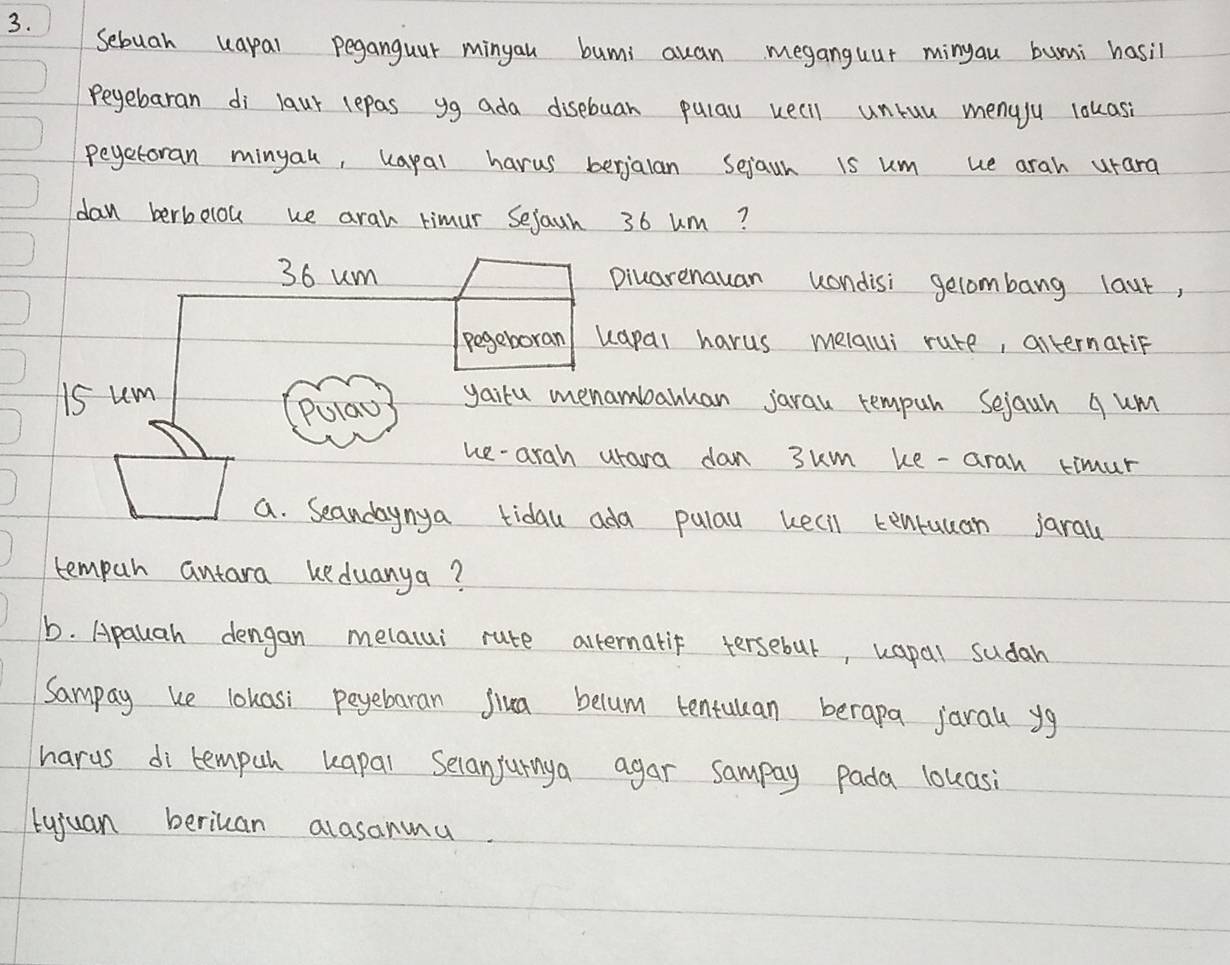 3.
Sebuah kapal peganguut minyak bumi akan meganguut minyak bumi hasil
Peyebaran di laut lepas yg ada disebuah pulau kecil untuk menuju lokasi
peyetoran minyak, kapal harus berjalan sejauh 15 km ke arah utara
dan berbelok ke arah timur sejauh 36 km ?
36 km
Dikarenakan kondisi gelombang laut,
pegeboran
kapal harus melalui rute, alternatif
15 km
Pulau
yaitu menambahkan jarak tempuh sejauh 4 km
ke-arah utara dan 3 km ke-arah timur
a. Seandaynya tidak ada pulau kecil tentukan jarak
tempuh antara keduanya ?
b. Apakah dengan melalui rute alternatif tersebut, kapal sudah
Sampay ke lokasi peyebaran jika belum tentukan berapa jarak yg
harus di tempuh kapal Selanjutnya agar sampay pada lokasi
tujuan berikan alasanmu.